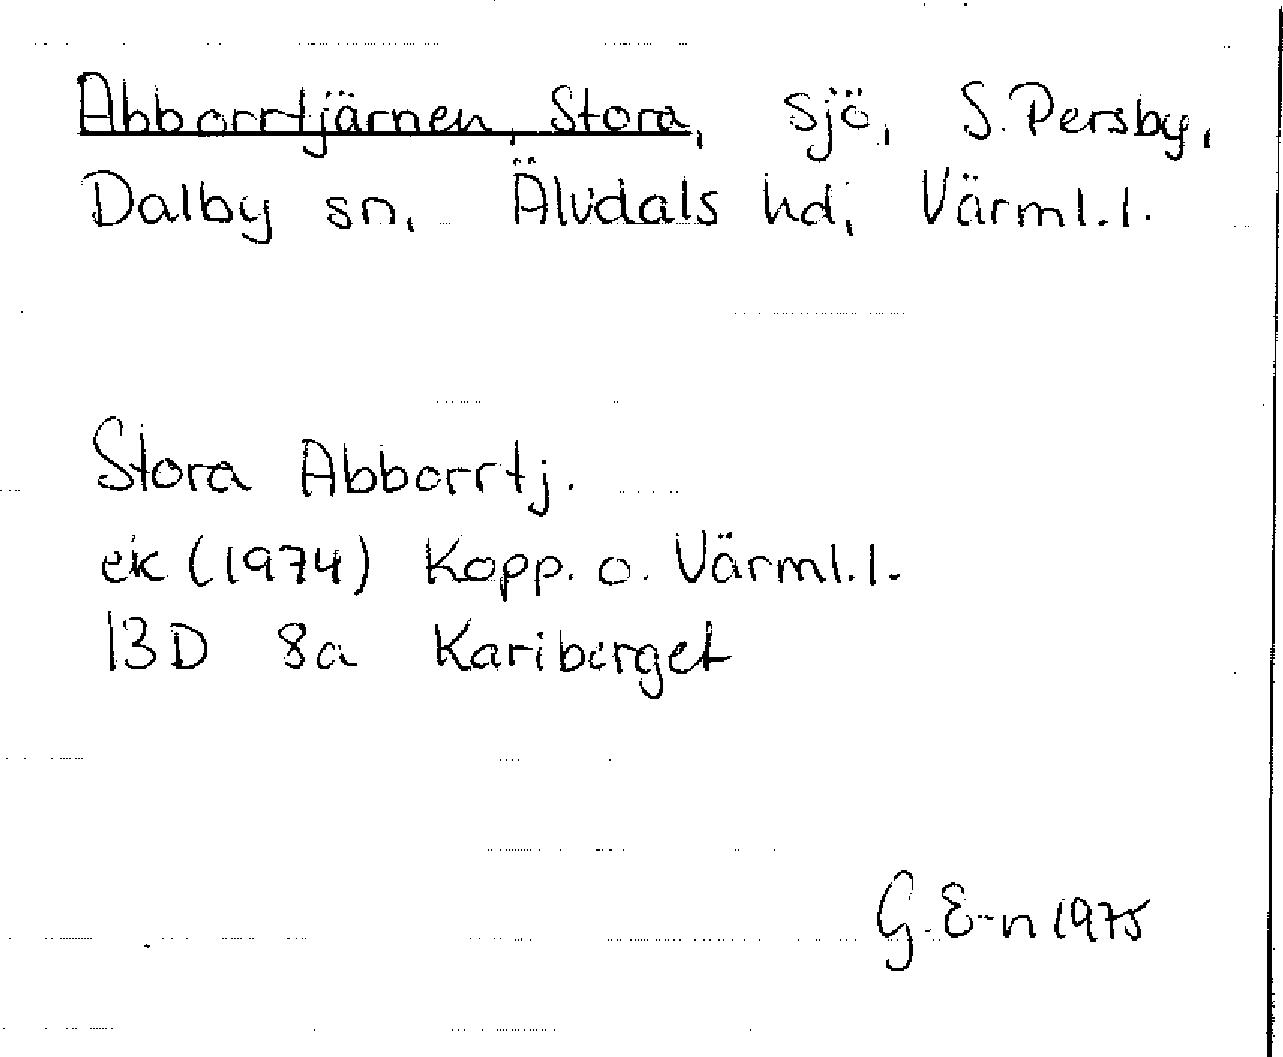 Abborrtjärnen, Stora, sjö, S. Persby,
Dalby sn, Älvdals hd, Värml. l.
Stora Abborrtj.
ek (1974) Kopp. o. Värml. l.
13D 8a Kariberget
G. E-n 1975